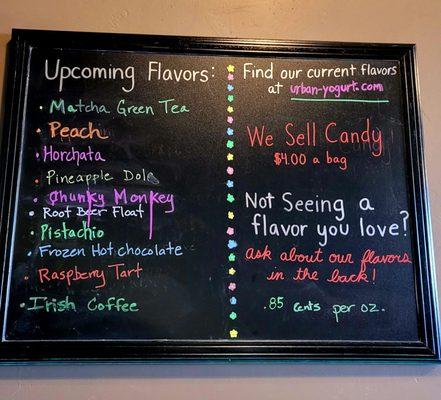 Upcoming Flavors:
• Matcha Green Tea
• Peach
• Horchata
• Pineapple Dole
• Chunky Monkey
• Root Beer Float
• Pistachio
• Frozen Hot chocolate
• Raspberry Tart
• Irish Coffee
Find our current flavors
at urban-yogurt.com
We Sell Candy
$4.00 a bag
Not Seeing a
flavor you love?
ask about our flavors
in the back!
.85 cents per oz.